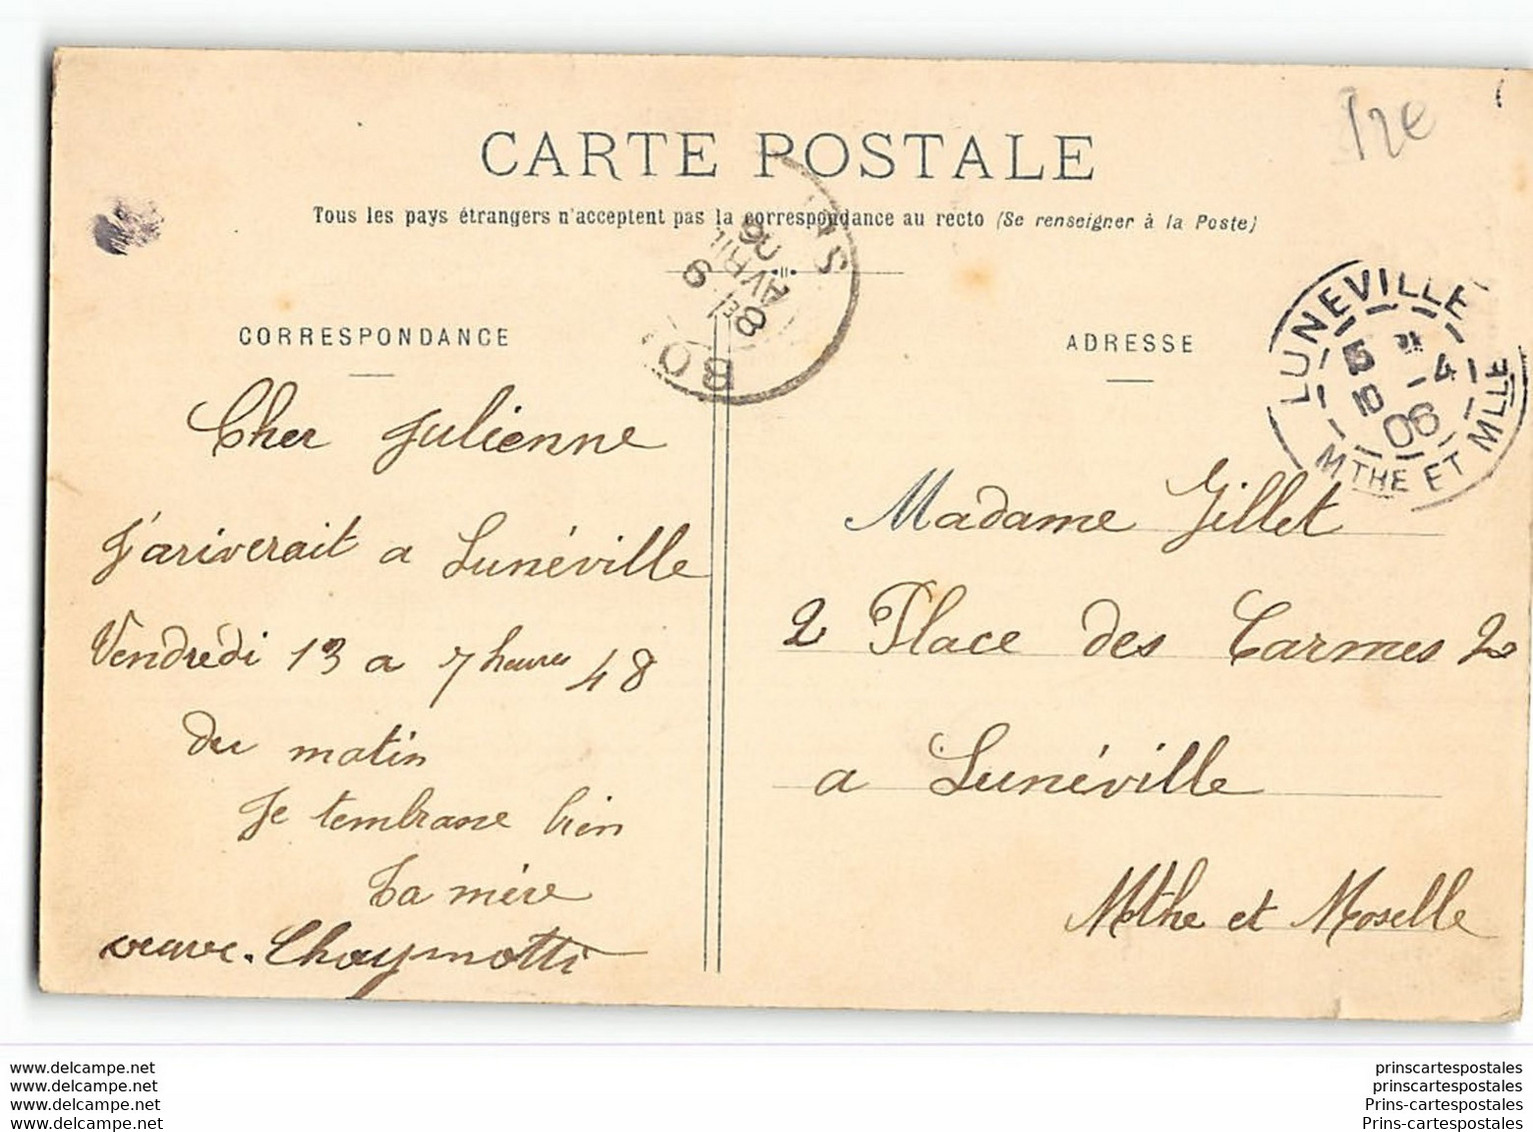 CARTE POSTALE
Tous les pays étrangers n'acceptent pas la correspondance au recto (Se renseigner à la Poste)
12€
8E 9
AVRIL
06
BO
LUNEVILLE
5
10 -4
06
MTHE ET MLLE
CORRESPONDANCE
Cher Julienne
J'ariverait a Lunéville
Vendrédi 13 a 7 heures 48
du matin
Je tembrasse bien
Ta mère
veuve. Chaymotti
ADRESSE
Madame Gillet
2 Place des Carmes 2
a Lunéville
Mthe et Moselle
www.delcampe.net
www.delcampe.net
www.delcampe.net
www.delcampe.net
prinscartespostales
prinscartespostales
Prins-cartespostales
Prins-cartespostales